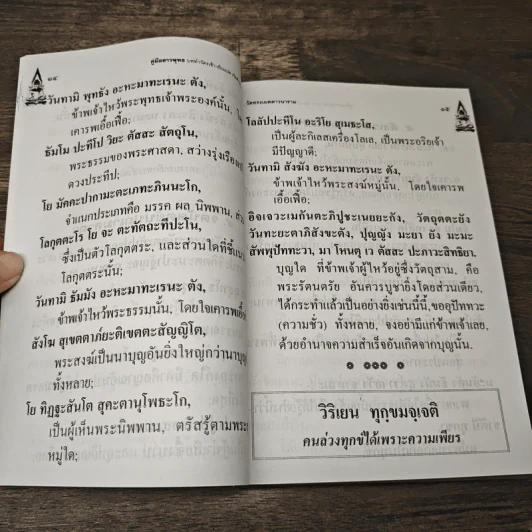 ๑๔
คู่มือชาวพุทธ
วันทามิ พุทธัง อะหะมาทะเรนะ ตัง,
ข้าพเจ้าไหว้พระพุทธเจ้าพระองค์นั้น,
เคารพเอื้อเฟื้อ;
ธัมโม ปะทีโป วิยะ ตัสสะ สัตถุโน,
พระธรรมของพระศาสดา, สว่างรุ่งเรือง
ดวงประทีป;
โย มัคคะปากามะตะเภทะภินนะโก,
จำแนกประเภทคือ มรรค ผล นิพพาน,
โลกุตตะโร โย จะ ตะทัตถะทีปะโน,
ซึ่งเป็นตัวโลกุตตระ, และส่วนใดที่ชี้แนว
โลกุตตระนั้น;
วันทามิ ธัมมัง อะหะมาทะเรนะ ตัง,
ข้าพเจ้าไหว้พระธรรมนั้น, โดยใจเคารพเอื้อ
สังโฆ สุเขตตาภ๎ยะติเขตตะสัญญิโต,
พระสงฆ์เป็นนาบุญอันยิ่งใหญ่กว่านาบุญ
ทั้งหลาย;
โย ทิฏฐะสันโต สุคะตานุโพธะโก,
เป็นผู้เห็นพระนิพพาน, ตรัสรู้ตามพระ
หมู่ใด;
๑๕
โลลัปปะหีโน อะริโย สุเมธะโส,
เป็นผู้ละกิเลสเครื่องโลเล, เป็นพระอริยเจ้า
มีปัญญาดี;
วันทามิ สังฆัง อะหะมาทะเรนะ ตัง,
ข้าพเจ้าไหว้พระสงฆ์หมู่นั้น, โดยใจเคารพ
เอื้อเฟื้อ;
อิจเจวะเมกันตะภิปูชะเนยยะกัง, วัตถุตตะยัง
วันทะยะตาภิสังขะตัง, ปุญญัง มะยา ยัง มะมะ
สัพพุปัททะวา, มา โหนตุ เว ตัสสะ ปะภาวะสิทธิยา.
บุญใด ที่ข้าพเจ้าผู้ไหว้อยู่ซึ่งวัตถุสาม, คือ
พระรัตนตรัย อันควรบูชายิ่งโดยส่วนเดียว,
ได้กระทำแล้วเป็นอย่างยิ่งเช่นนี้นี้,ขออุปัททวะ
(ความชั่ว) ทั้งหลาย, จงอย่ามีแก่ข้าพเจ้าเลย,
ด้วยอำนาจความสำเร็จอันเกิดจากบุญนั้น.
วิริเยน ทุกฺขมจฺเจติ
คนล่วงทุกข์ได้เพราะความเพียร